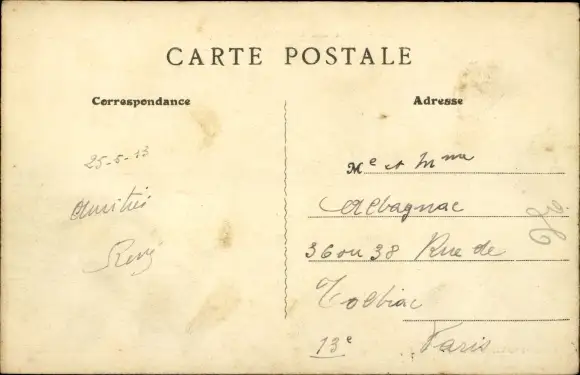 CARTE POSTALE
Correspondance
Adresse
25-6-13
Amitiés
René
Me et Mme
Albagnac
36 ou 38 Rue de
Tolbiac
13e Paris